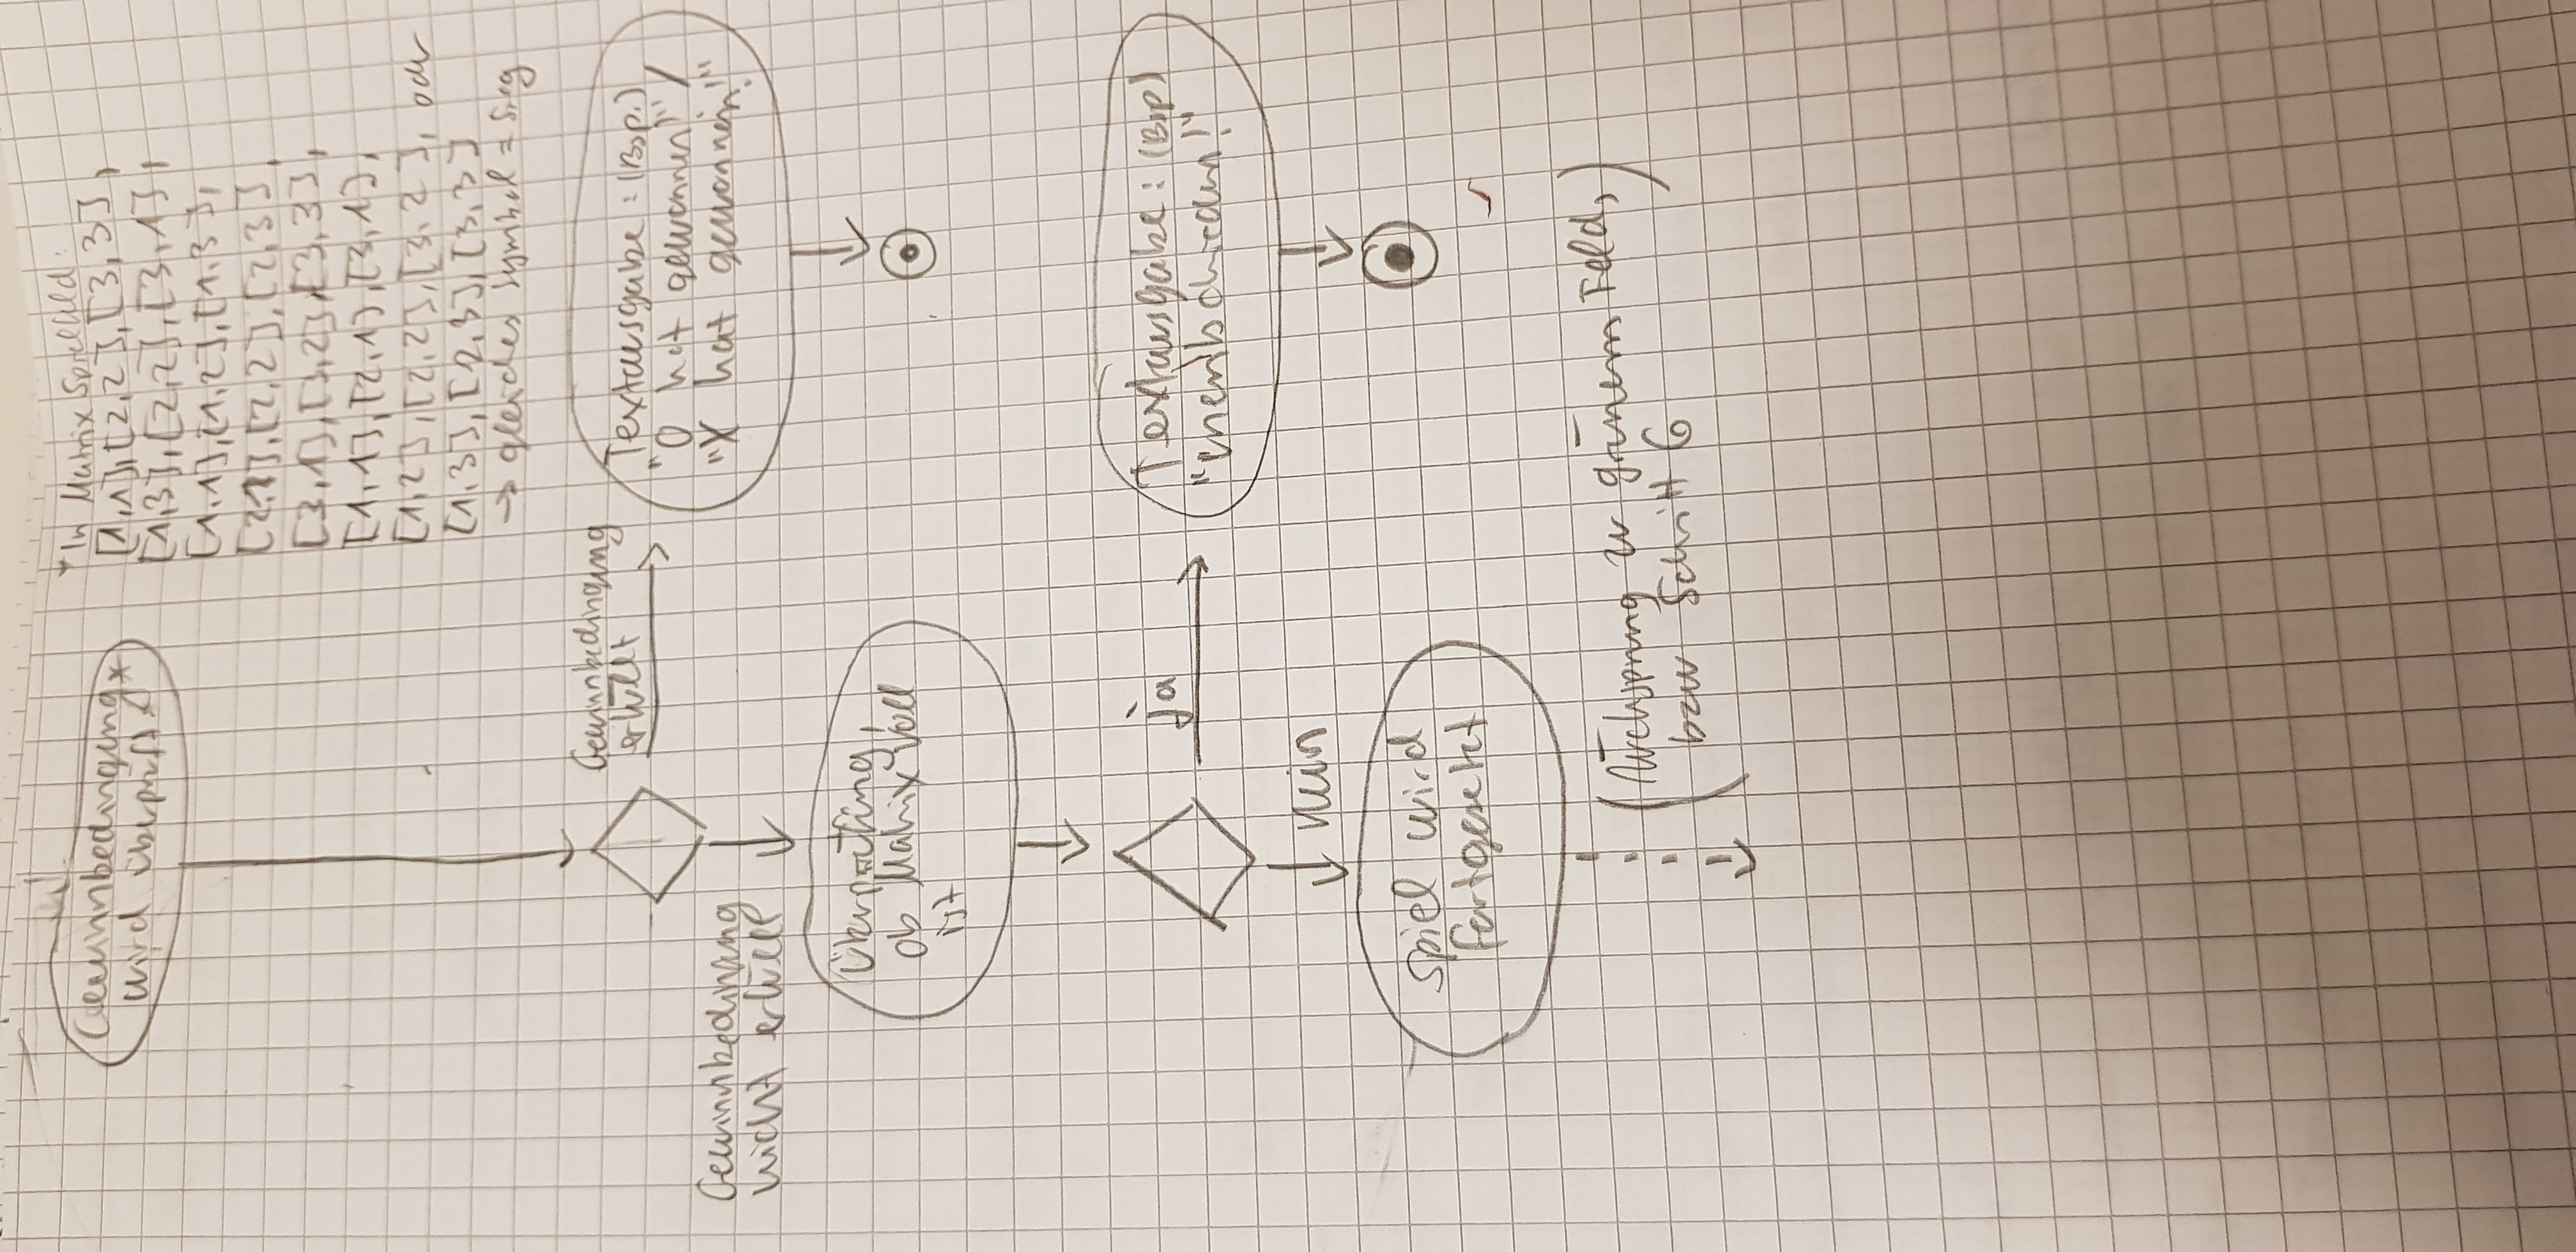 Gewinnbedingung*
wird überprüft
* In Matrix Spielfeld:
[1,1],[2,2],[3,3],
[1,3],[2,2],[3,1],
[1,1],[1,2],[1,3],
[2,1],[2,2],[2,3],
[3,1],[3,2],[3,3],
[1,1],[2,1],[3,1],
[1,2],[2,2],[3,2], oder
[1,3],[2,3],[3,3]
→ gleiches Symbol = Sieg
Gewinnbedingung
erfüllt
Textausgabe: (Bsp.)
"O hat gewonnen!" /
"X hat gewonnen!"
Gewinnbedingung
nicht erfüllt
Überprüfung,
ob Matrix voll
ist
ja
Textausgabe: (Bsp)
"Unentschieden!"
nein
Spiel wird
fortgesetzt
(Rücksprung zu grünem Feld,
bzw Schritt 6)